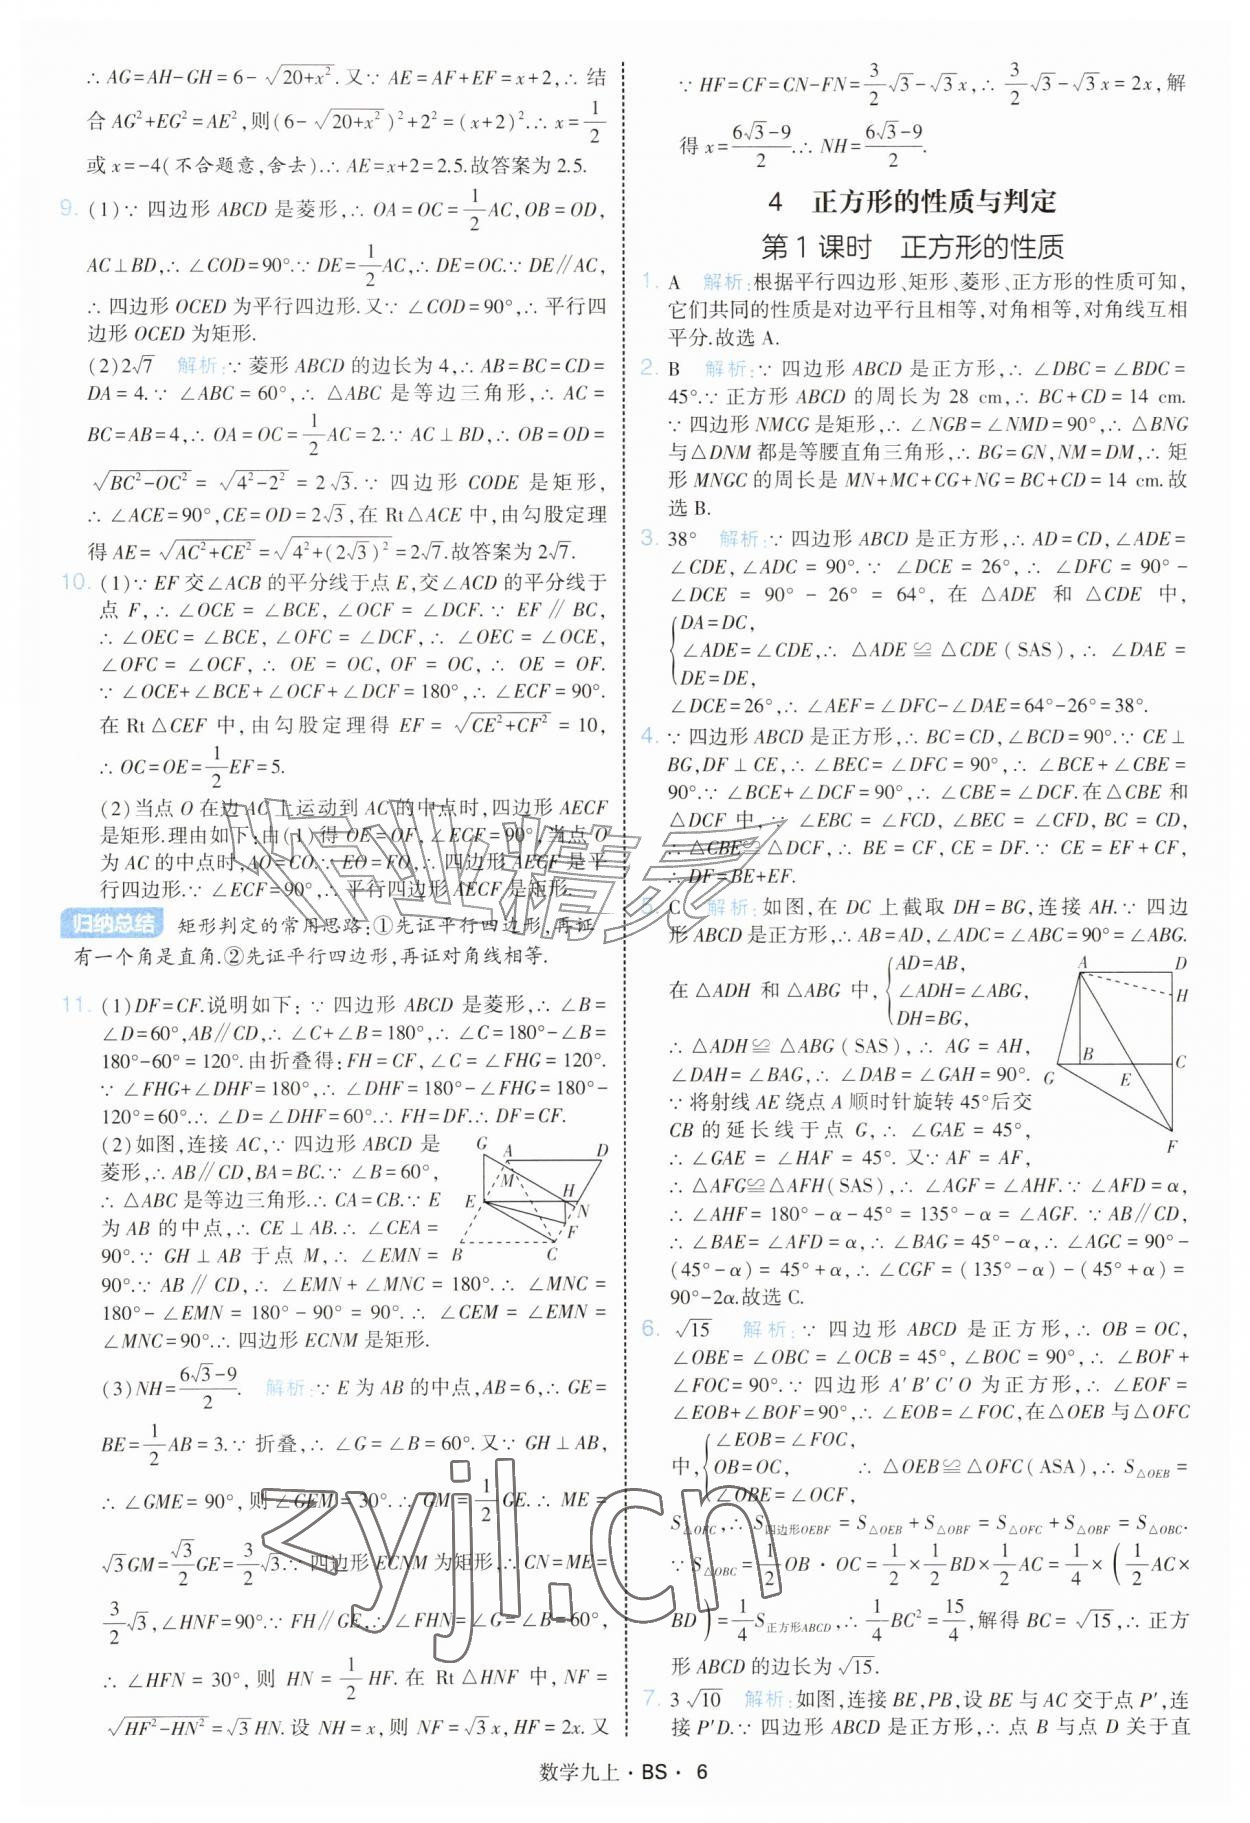 ∴ AG=AH-GH=6-√(20+x²).又∵ AE=AF+EF=x+2,∴ 结
合 AG²+EG²=AE²,则(6-√(20+x²))²+2²=(x+2)².∴ x=1/2
或 x=-4(不合题意,舍去).∴ AE=x+2=2.5.故答案为 2.5.
9. (1)∵ 四边形 ABCD 是菱形,∴ OA=OC=1/2AC,OB=OD,
AC⊥BD,∴ ∠COD=90°.∵ DE=1/2AC,∴ DE=OC.∵ DE∥AC,
∴ 四边形 OCED 为平行四边形.又∵ ∠COD=90°,∴ 平行四
边形 OCED 为矩形.
(2)2√7 解析:∵ 菱形 ABCD 的边长为 4,∴ AB=BC=CD=
DA=4.∵ ∠ABC=60°,∴ △ABC 是等边三角形,∴ AC=
BC=AB=4,∴ OA=OC=1/2AC=2.∵ AC⊥BD,∴ OB=OD=
√(BC²-OC²)=√(4²-2²)=2√3.∵ 四边形 CODE 是矩形,
∴ ∠ACE=90°,CE=OD=2√3,在 Rt△ACE 中,由勾股定理
得 AE=√(AC²+CE²)=√(4²+(2√3)²)=2√7.故答案为 2√7.
10. (1)∵ EF 交∠ACB 的平分线于点 E,交∠ACD 的平分线于
点 F,∴ ∠OCE=∠BCE,∠OCF=∠DCF.∵ EF∥BC,
∴ ∠OEC=∠BCE,∠OFC=∠DCF,∴ ∠OEC=∠OCE,
∠OFC=∠OCF,∴ OE=OC,OF=OC,∴ OE=OF.
∵ ∠OCE+∠BCE+∠OCF+∠DCF=180°,∴ ∠ECF=90°.
在 Rt△CEF 中,由勾股定理得 EF=√(CE²+CF²)=10,
∴ OC=OE=1/2EF=5.
(2)当点 O 在边 AC 上运动到 AC 的中点时,四边形 AECF
是矩形.理由如下:由(1)得 OE=OF,∠ECF=90°,当点 O
为 AC 的中点时,AO=CO.∵ EO=FO,∴ 四边形 AECF 是平
行四边形.∵ ∠ECF=90°,∴ 平行四边形 AECF 是矩形.
归纳总结 矩形判定的常用思路:①先证平行四边形,再证
有一个角是直角.②先证平行四边形,再证对角线相等.
11. (1)DF=CF.说明如下:∵ 四边形 ABCD 是菱形,∴ ∠B=
∠D=60°,AB∥CD,∴ ∠C+∠B=180°,∴ ∠C=180°-∠B=
180°-60°=120°.由折叠得:FH=CF,∠C=∠FHG=120°.
∵ ∠FHG+∠DHF=180°,∴ ∠DHF=180°-∠FHG=180°-
120°=60°.∴ ∠D=∠DHF=60°.∴ FH=DF.∴ DF=CF.
(2)如图,连接 AC,∵ 四边形 ABCD 是
菱形,∴ AB∥CD,BA=BC.∵ ∠B=60°,
∴ △ABC 是等边三角形.∴ CA=CB.∵ E
为 AB 的中点,∴ CE⊥AB.∴ ∠CEA=
90°.∵ GH⊥AB 于点 M,∴ ∠EMN=
90°.∵ AB∥CD,∴ ∠EMN+∠MNC=180°.∴ ∠MNC=
180°-∠EMN=180°-90°=90°.∴ ∠CEM=∠EMN=
∠MNC=90°.∴ 四边形 ECNM 是矩形.
G A D M H E N F B C
(3)NH=(6√3-9)/2. 解析:∵ E 为 AB 的中点,AB=6,∴ GE=
BE=1/2AB=3.∵ 折叠,∴ ∠G=∠B=60°.又∵ GH⊥AB,
∴ ∠GME=90°,则 ∠GEM=30°.∴ GM=1/2GE.∴ ME=
√3GM=√3/2GE=3/2√3.∵ 四边形 ECNM 为矩形,∴ CN=ME=
3/2√3,∠HNF=90°.∵ FH∥GE,∴ ∠FHN=∠G=∠B=60°,
∴ ∠HFN=30°,则 HN=1/2HF.在 Rt△HNF 中,NF=
√(HF²-HN²)=√3HN.设 NH=x,则 NF=√3x,HF=2x.又
∵ HF=CF=CN-FN=3/2√3-√3x,∴ 3/2√3-√3x=2x,解
得 x=(6√3-9)/2.∴ NH=(6√3-9)/2.
4 正方形的性质与判定
第 1 课时 正方形的性质
1. A 解析:根据平行四边形、矩形、菱形、正方形的性质可知,
它们共同的性质是对边平行且相等,对角相等,对角线互相
平分.故选 A.
2. B 解析:∵ 四边形 ABCD 是正方形,∴ ∠DBC=∠BDC=
45°.∵ 正方形 ABCD 的周长为 28 cm,∴ BC+CD=14 cm.
∵ 四边形 NMCG 是矩形,∴ ∠NGB=∠NMD=90°,∴ △BNG
与△DNM 都是等腰直角三角形,∴ BG=GN,NM=DM,∴ 矩
形 MNGC 的周长是 MN+MC+CG+NG=BC+CD=14 cm.故
选 B.
3. 38° 解析:∵ 四边形 ABCD 是正方形,∴ AD=CD,∠ADE=
∠CDE,∠ADC=90°.∵ ∠DCE=26°,∴ ∠DFC=90°-
∠DCE=90°-26°=64°,在 △ADE 和 △CDE 中,
{DA=DC,
∠ADE=∠CDE,∴ △ADE≌△CDE(SAS),∴ ∠DAE=
DE=DE,
∠DCE=26°,∴ ∠AEF=∠DFC-∠DAE=64°-26°=38°.
4. ∵ 四边形 ABCD 是正方形,∴ BC=CD,∠BCD=90°.∵ CE⊥
BG,DF⊥CE,∴ ∠BEC=∠DFC=90°,∴ ∠BCE+∠CBE=
90°.∵ ∠BCE+∠DCF=90°,∴ ∠CBE=∠DCF.在△CBE 和
△DCF 中,∵ ∠EBC=∠FCD,∠BEC=∠CFD,BC=CD,
∴ △CBE≌△DCF,∴ BE=CF,CE=DF.∵ CE=EF+CF,
∴ DF=BE+EF.
5. C 解析:如图,在 DC 上截取 DH=BG,连接 AH.∵ 四边
形 ABCD 是正方形,∴ AB=AD,∠ADC=∠ABC=90°=∠ABG.
在 △ADH 和 △ABG 中,{AD=AB,
∠ADH=∠ABG,
DH=BG,
∴ △ADH≌△ABG(SAS),∴ AG=AH,
∠DAH=∠BAG,∴ ∠DAB=∠GAH=90°.
∵ 将射线 AE 绕点 A 顺时针旋转 45°后交
CB 的延长线于点 G,∴ ∠GAE=45°,
∴ ∠GAE=∠HAF=45°.又∵ AF=AF,
A D H B C G E F
∴ △AFG≌△AFH(SAS),∴ ∠AGF=∠AHF.∵ ∠AFD=α,
∴ ∠AHF=180°-α-45°=135°-α=∠AGF.∵ AB∥CD,
∴ ∠BAE=∠AFD=α,∴ ∠BAG=45°-α,∴ ∠AGC=90°-
(45°-α)=45°+α,∴ ∠CGF=(135°-α)-(45°+α)=
90°-2α.故选 C.
6. √15 解析:∵ 四边形 ABCD 是正方形,∴ OB=OC,
∠OBE=∠OBC=∠OCB=45°,∠BOC=90°,∴ ∠BOF+
∠FOC=90°.∵ 四边形 A′B′C′O 为正方形,∴ ∠EOF=
∠EOB+∠BOF=90°,∴ ∠EOB=∠FOC,在△OEB 与△OFC
中,{∠EOB=∠FOC,
OB=OC, ∴ △OEB≌△OFC(ASA),∴ S△OEB=
∠OBE=∠OCF,
S△OFC,∴ S四边形OEBF=S△OEB+S△OBF=S△OFC+S△OBF=S△OBC.
∵ S△OBC=1/2OB·OC=1/2×1/2BD×1/2AC=1/4×(1/2AC×
BD)=1/4S正方形ABCD,∴ 1/4BC²=15/4,解得 BC=√15,∴ 正方
形 ABCD 的边长为√15.
7. 3√10 解析:如图,连接 BE,PB,设 BE 与 AC 交于点 P′,连
接 P′D.∵ 四边形 ABCD 是正方形,∴ 点 B 与点 D 关于直
数学九上·BS·6
作业精灵
zyjl.cn